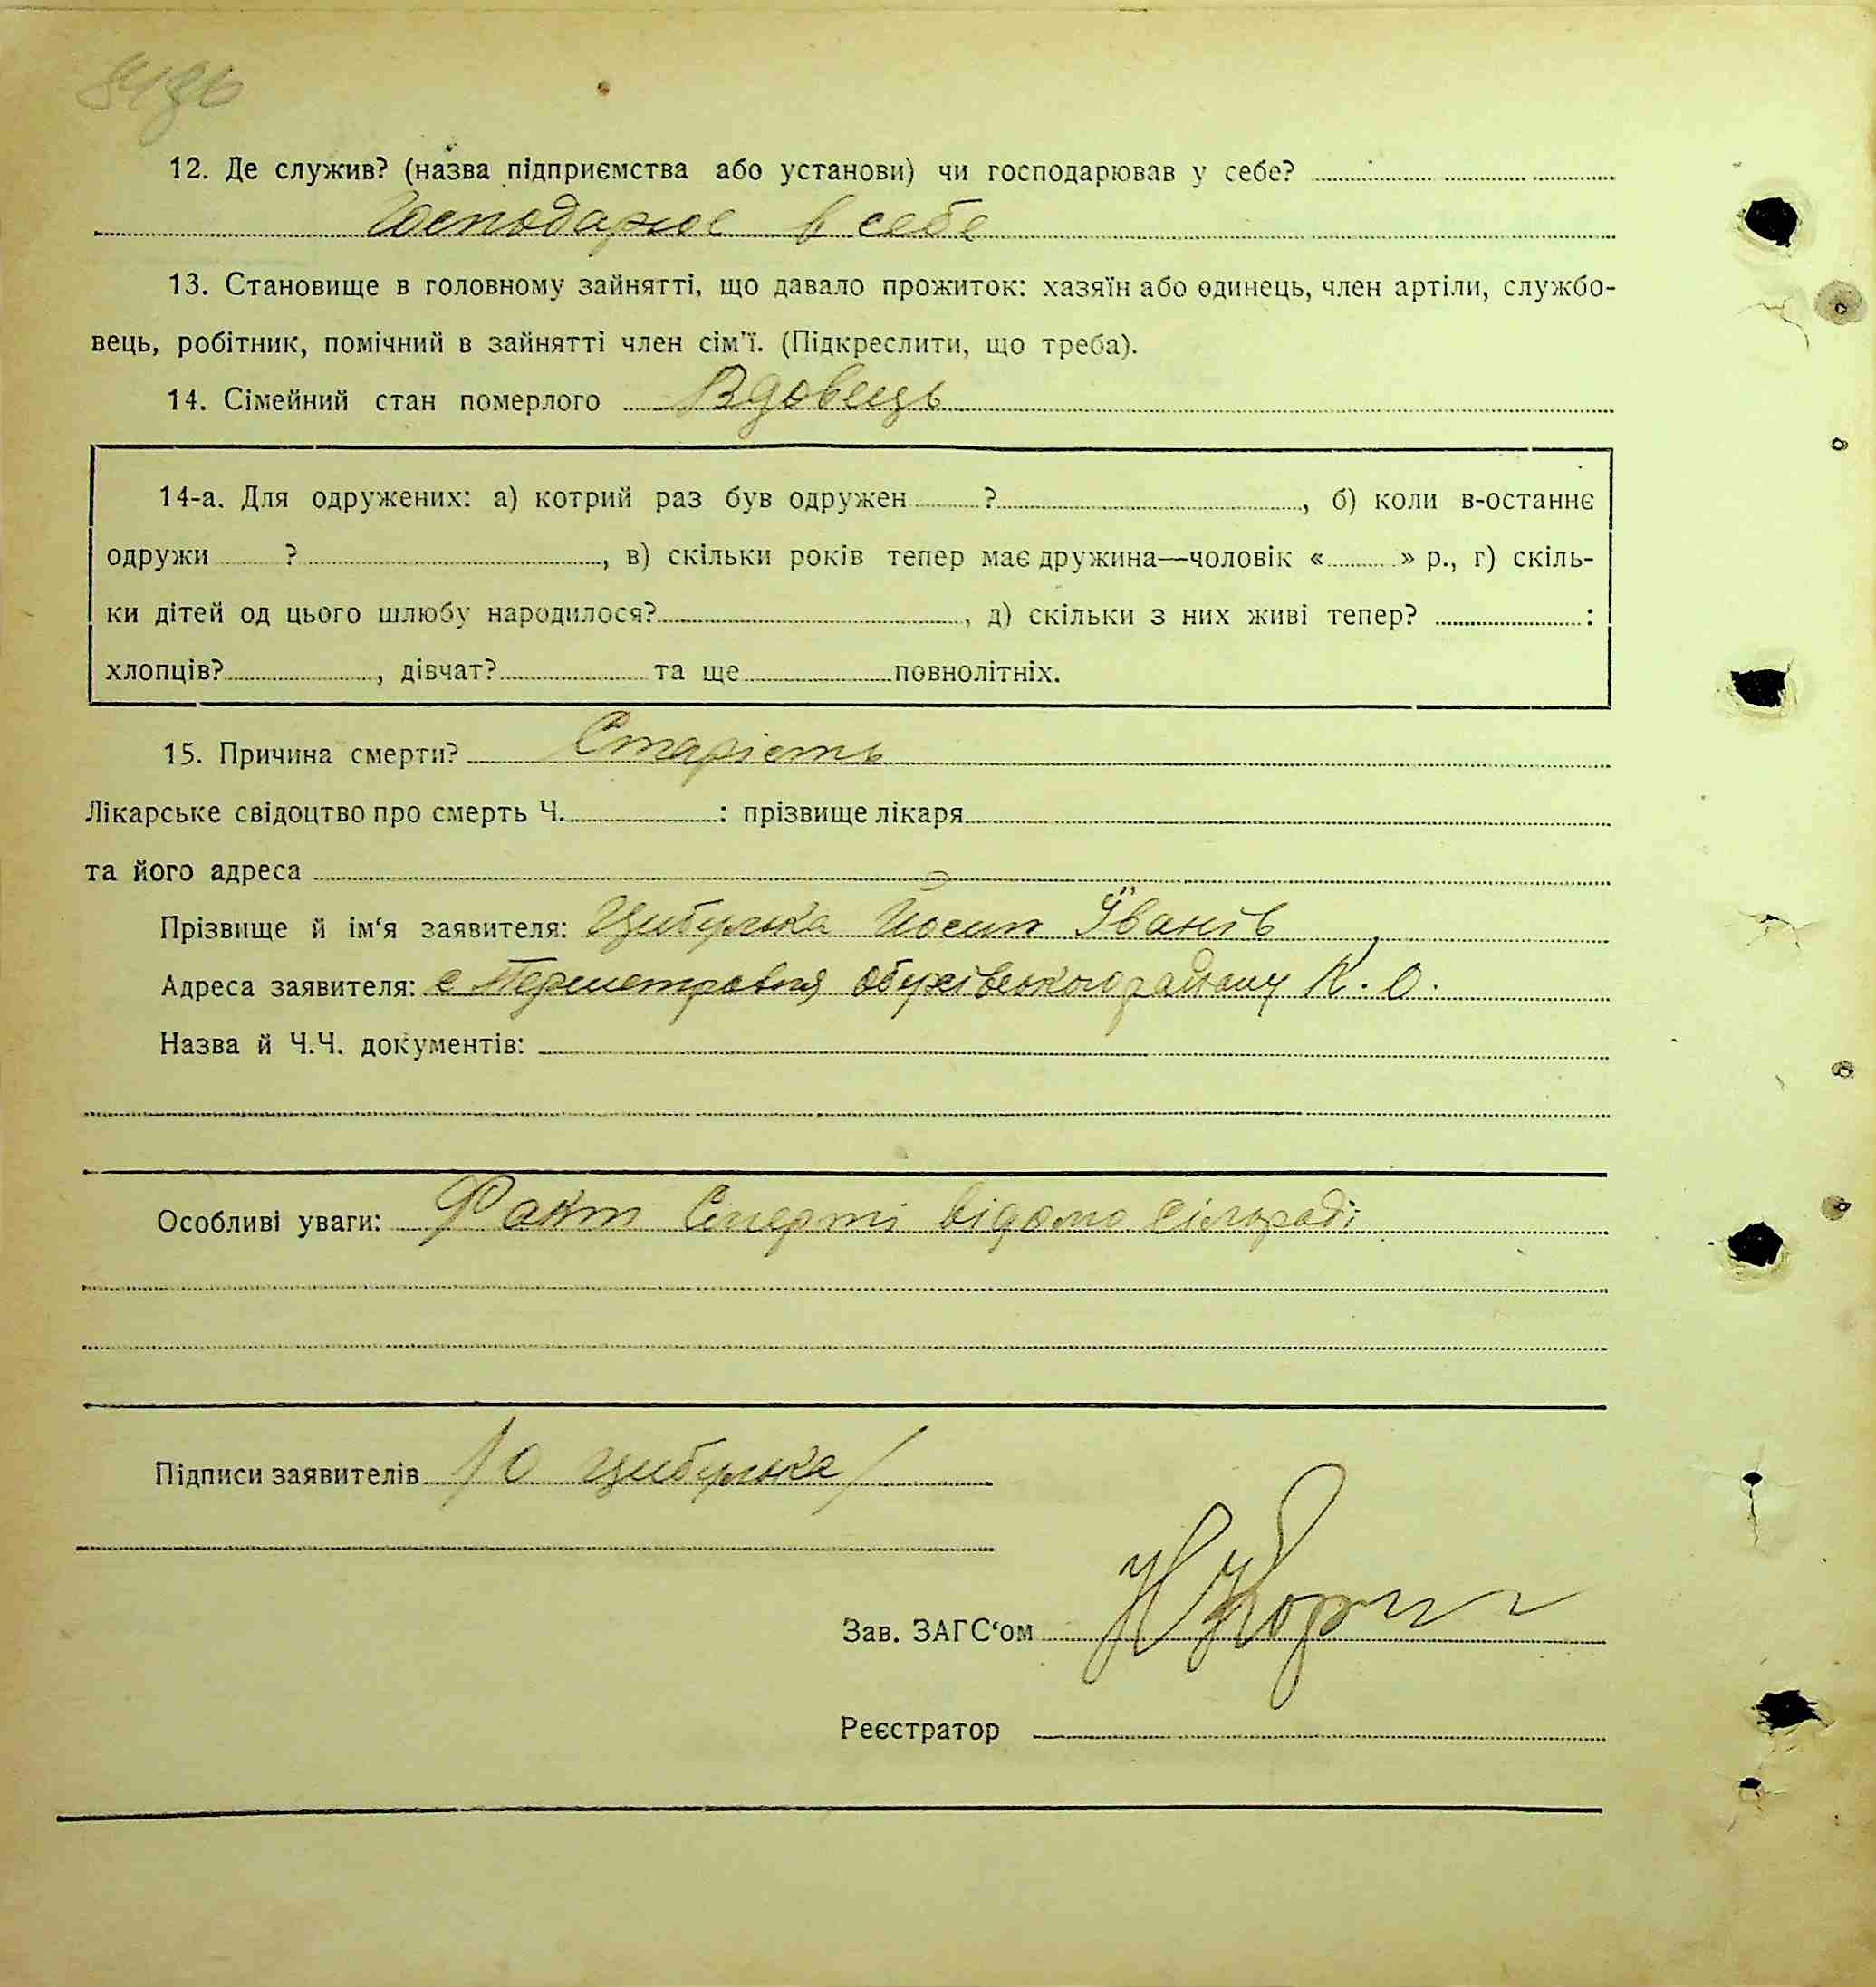 12. Де служив? (назва підприємства або установи) чи господарював у себе?
Господарює в себе
13. Становище в головному зайнятті, що давало прожиток: хазяїн або одинець, член артіли, службо-
вець, робітник, помічний в зайнятті член сім'ї. (Підкреслити, що треба).
14. Сімейний стан померлого Вдовець
14-а. Для одружених: а) котрий раз був одружен ? , б) коли в-останнє
одружи ? , в) скільки років тепер має дружина—чоловік « » р., г) скіль-
ки дітей од цього шлюбу народилося? , д) скільки з них живі тепер? :
хлопців? , дівчат? та ще повнолітніх.
15. Причина смерти? Старість
Лікарське свідоцтво про смерть Ч. : прізвище лікаря
та його адреса
Прізвище й ім'я заявителя: Цибулька Йосип Іванів
Адреса заявителя: с Обухівського району К. О.
Назва й Ч.Ч. документів:
Особливі уваги: Факт Смерті відомо сільраді
Підписи заявителів /О Цибулька/
Зав. ЗАГС'ом
Реєстратор